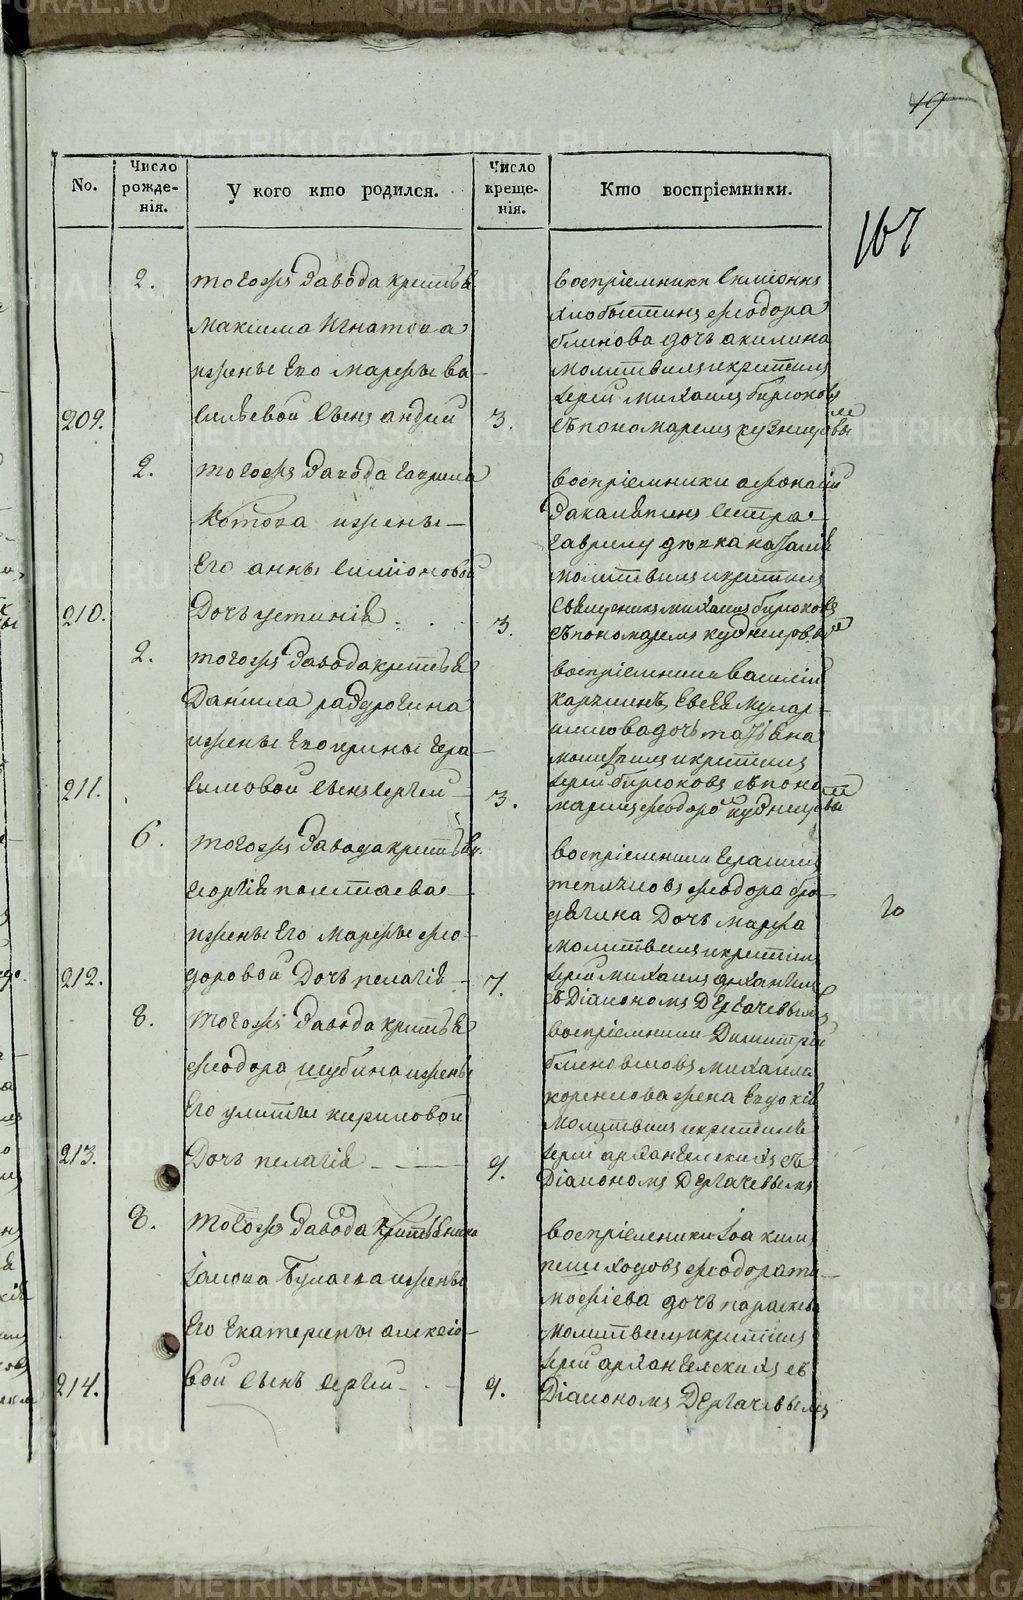 19
167
No.
Число рожденія.
У кого кто родился.
Число крещенія.
Кто воспріемники.
209.
2.
тогожъ завода крестья
Максима Игнатова
ижены его марѳы ва
сильевой сынъ андрей
3.
воспріемники Симіонъ
хлобыстинъ ѳеодора
блинова дочь акилина
молитвилъ икрестилъ
Іерей михаилъ бирюковъ
съпономаремъ кузнецовы
210.
2.
тогожъ завода гаврила
Котова ижены
его анны симіоновой
Дочь устинія
3.
воспріемники аѳонасій
сестра
гаврилу дѣвка наталія
молитвилъ икрестилъ
священикъ михаилъ бирюковъ
съпономаремъ кузнецовы
211.
2.
тогожъ завода крестья
Даніила разурогина
ижены его ирины гера
симовой сынъ сергей
3.
воспріемники василій
Евсея мулар
шиловадочь татьяна
молитвилъ икрестилъ
Іерей бирюковъ съпоно
маремъ ѳеодоро кузнецовы
212.
6.
тогожъ завода крестья
георгія полтаева
ижены его марѳы ѳео
доровой Дочь пелагія
7.
воспріемники герасимъ
тепляковъ ѳеодора бро
дягина Дочь марѳа
молитвилъ икрестилъ
Іерей михаилъ архангел
съ Діакономъ Дергачевымъ
20
213.
8.
тогожъ завода крестья
ѳеодора шубина ижены
Его улиты кириловой
Дочь пелагія
9.
воспріемники Димитрій
блиновсковъ михаила
корепнова жена Евдокія
молитвилъ икрестилъ
Іерей архангелскихъ съ
Діакономъ Дергачевымъ
214.
8.
тогожъ завода крестьянина
Іакова Булаева ижены
Его Екатерины алексіе
вой сынъ сергей
9.
воспріемники Іоакимъ
пешеходовъ ѳеодора ти
моѳіева дочь параскева
молитвилъ икрестилъ
Іерей архангелскихъ съ
Діакономъ Дергачевымъ
METRIKI.GASO-URAL.RU